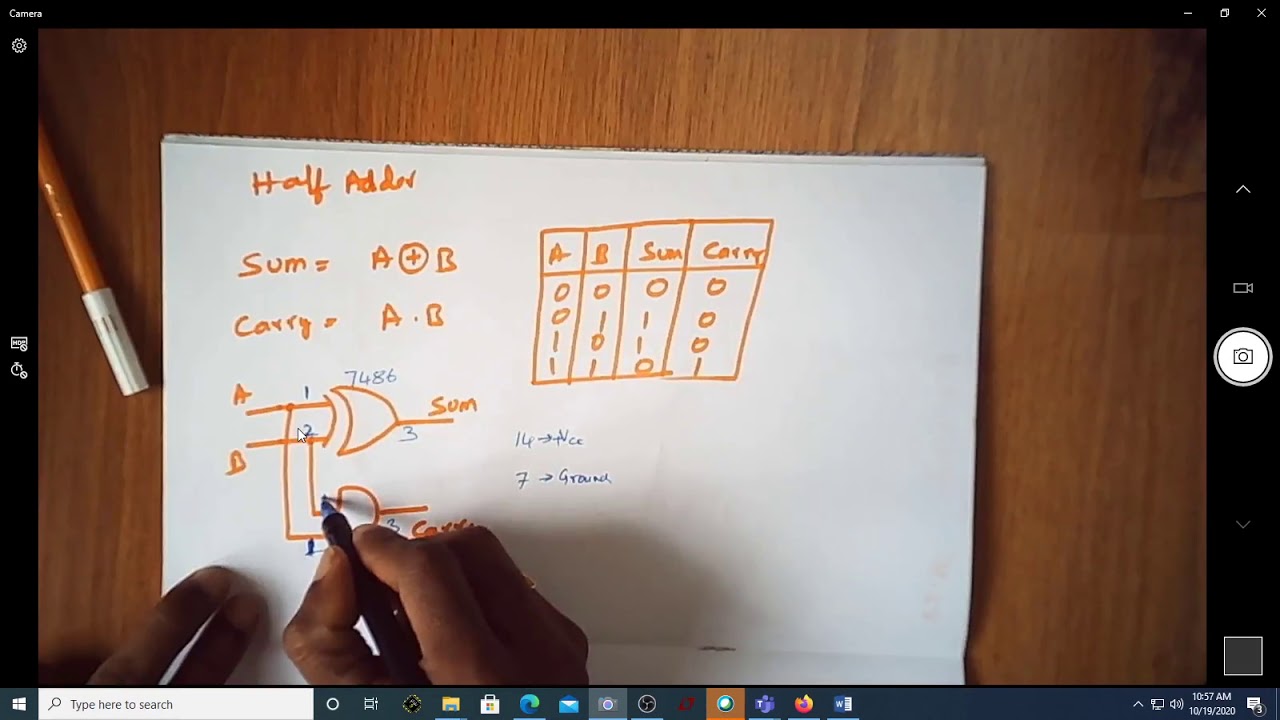 Camera
Half Adder
Sum = A ⊕ B
Carry = A . B
A B Sum Carry
0 0 0 0
0 1 1 0
1 0 1 0
1 1 0 1
7486
A 1
Sum
2
3
B
14 → +Vcc
7 → Ground
3
Carry
1
Type here to search
10:57 AM
10/19/2020